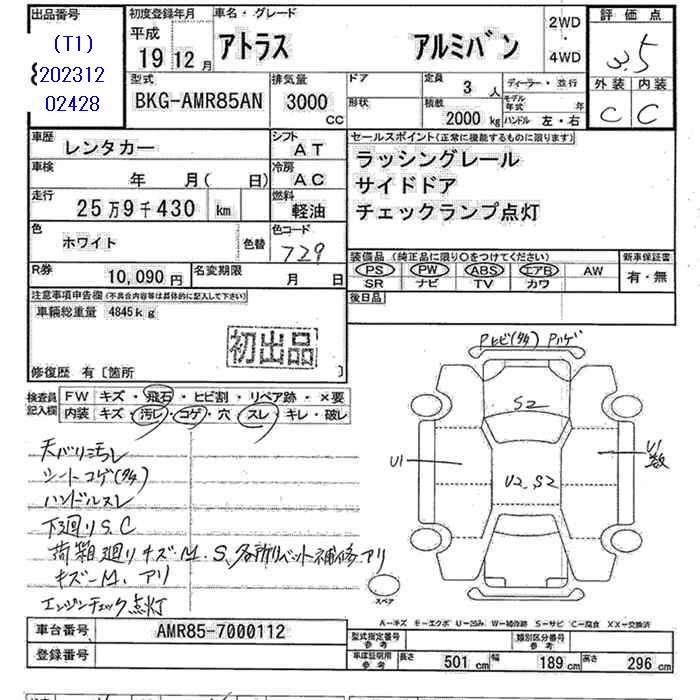 出品番号
(T1)
202312
02428
初度登録年月
平成
19 12 月
車名・グレード
アトラス アルミバン
2WD
・
4WD
評価点
3.5
外装 内装
C C
型式
BKG-AMR85AN
排気量
3000
CC
ドア
形状
定員
3 人
積載
2000 kg
ディーラー・並行
モデル年式 年
ハンドル 左・右
車歴
レンタカー
シフト
AT
車検
年 月( 日)
冷房
AC
走行
25万9千430 km
燃料
軽油
色
ホワイト
色替
色コード
729
R券
10,090円
名変期限
月 日
セールスポイント(正常に機能するものに限ります)
ラッシングレール
サイドドア
チェックランプ点灯
装備品 (純正品に限り○をつけてください)
PS PW ABS エアB AW
SR ナビ TV カワ
新車保証書
有・無
後日品
注意事項申告欄(不具合内容等は具体的に記入して下さい)
車輌総重量 4845kg
初出品
修復歴 有〔箇所 〕
検査員記入欄
FW キズ・飛石・ヒビ割・リペア跡・×要
内装 キズ・汚レ・コゲ・穴・スレ・キレ・破レ
天バリ汚レ
シートコゲ(多)
ハンドルスレ
下廻りS.C
荷箱廻りキズ-M.S.各所リベット補修アリ
キズ-M.アリ
エンジンチェック点灯
Pヒビ(多) Pハゲ
S2
U1
U2.S2
U1
数
スペア
A-キズ E-エクボ U-凹み W-補修跡 S-サビ C-腐食 XX-交換済
車台番号
AMR85-7000112
登録番号
型式指定番号
参考
類別区分番号
参考
車庫証明用
参考
長さ 501 cm 幅 189 cm 高さ 296 cm